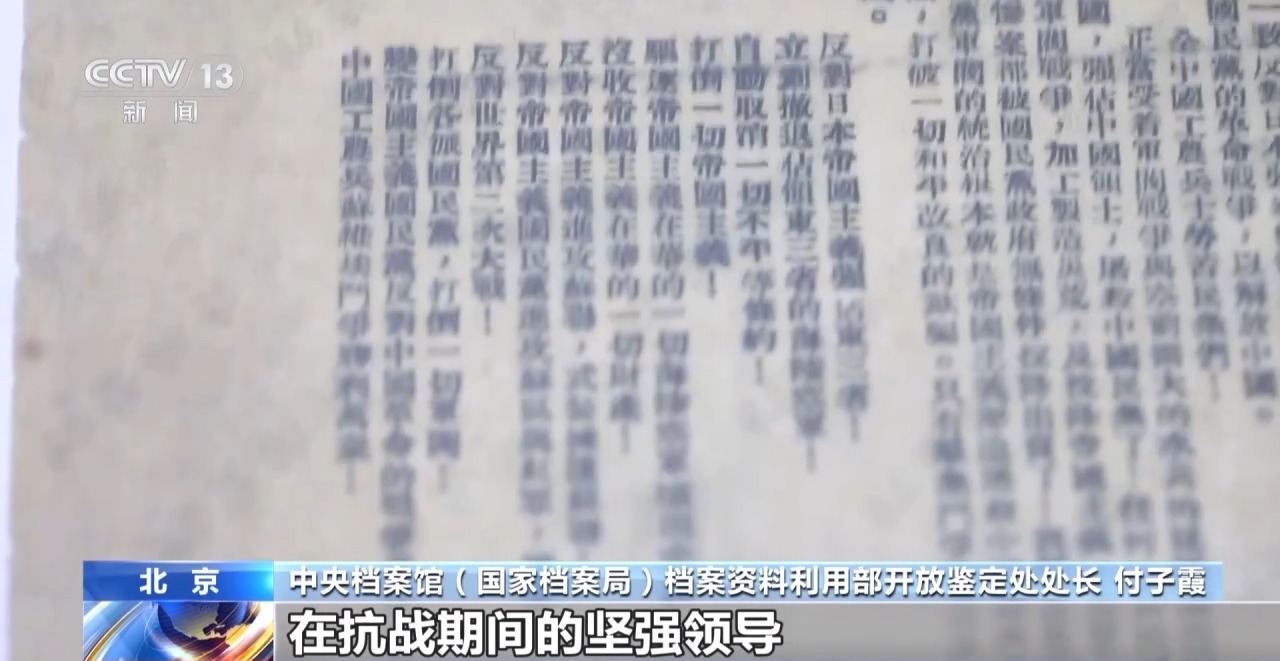 CCTV 13
新闻
國民黨的革命戰爭，以解放中國。
全中國工農兵士勞苦民衆們！
正當受着軍閥戰爭
國，强佔中國領土，屠殺中國民衆！
軍閥戰爭，加工製造災荒，及投降帝國主義
慘案都被國民黨政府無條件投降出賣！
黨軍閥的統治根本就是帝國主義
，打破一切和平改良的欺騙。只有
反對日本帝國主義强佔東三省！
立刻撤退佔領東三省的海陸空軍！
自動取消一切不平等條約！
打倒一切帝國主義！
驅逐帝國主義在華的一切海陸空軍
沒收帝國主義在華的一切財產！
反對帝國主義進攻蘇聯，武裝擁護蘇聯
反對帝國主義國民黨進攻蘇區與紅軍，
反對世界第二次大戰！
打倒各派國民黨，打倒一切軍閥！
變帝國主義國民黨反對中國革命的戰爭
中國工農兵蘇維埃鬥爭勝利萬歲！
北京
中央档案馆（国家档案局）档案资料利用部开放鉴定处处长 付子霞
在抗战期间的坚强领导